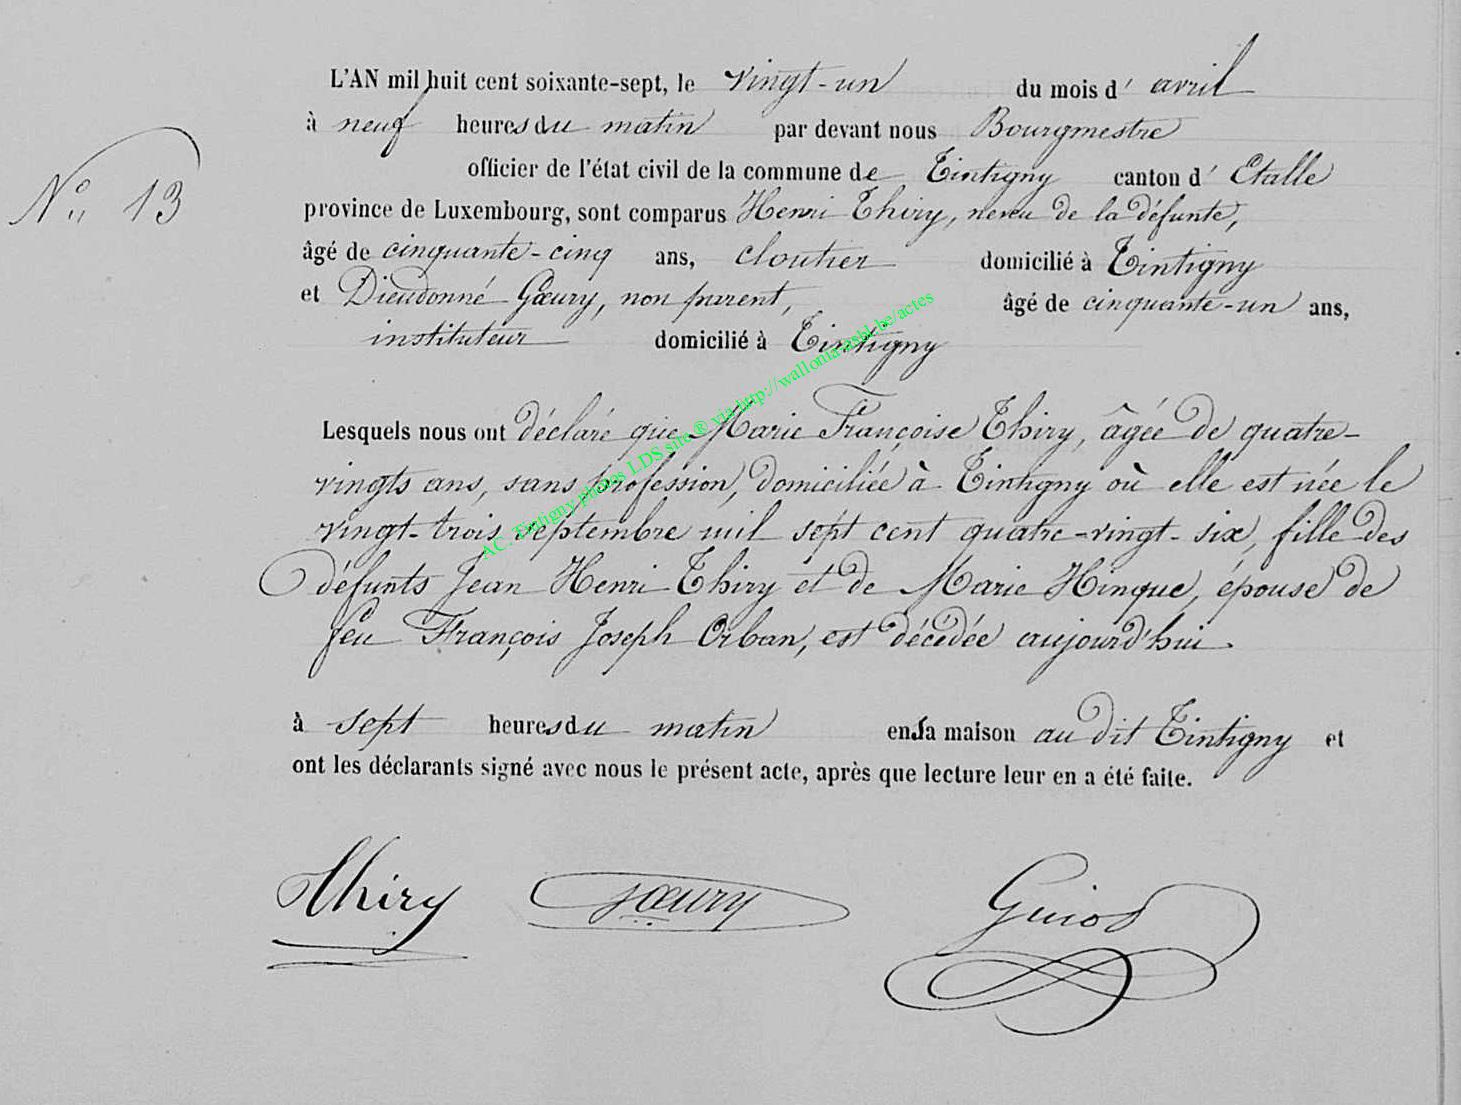 L'AN mil huit cent soixante-sept, le vingt-un du mois d' avril
à neuf heures du matin par devant nous Bourgmestre
N° 13
officier de l'état civil de la commune de Tintigny canton d' Etalle
province de Luxembourg, sont comparus Henri Thiry, neveu de la défunte,
âgé de cinquante-cinq ans, cloutier domicilié à Tintigny
et Dieudonné Gœury, non parent, âgé de cinquante-un ans,
instituteur domicilié à Tintigny
AC. Tintigny photos LDS site ® via http://wallonia-asbl.be/actes
Lesquels nous ont déclaré que Marie Françoise Thiry, âgée de quatre-
vingts ans, sans profession, domiciliée à Tintigny où elle est née le
vingt-trois septembre mil sept cent quatre-vingt-six, fille des
défunts Jean Henri Thiry et de Marie Hinque, épouse de
feu François Joseph Orban, est décédée aujourd'hui
à sept heures du matin en sa maison au dit Tintigny et
ont les déclarants signé avec nous le présent acte, après que lecture leur en a été faite.
Thiry Gœury Guiot